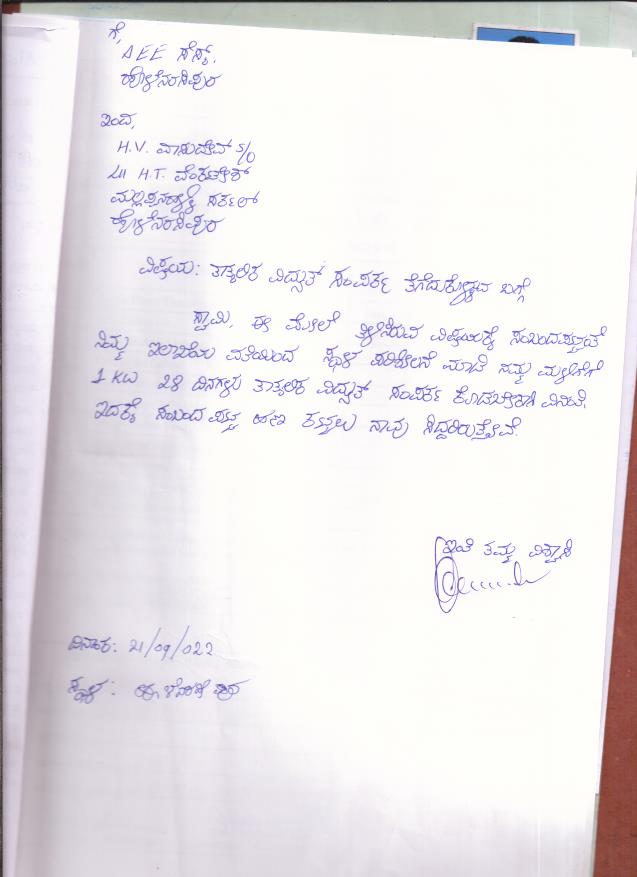 ಗೆ,
AEE ಸೆಸ್ಕ್.
ಹೊಳೆನರಸಿಪುರ
ಇಂದ,
H.V. ವಾಸುದೇವ್ S/O
Lt H.T. ವೆಂಕಟೇಶ್
ಸರ್ಕಲ್
ಹೊಳೆನರಸಿಪುರ
ವಿಷಯ: ತಾತ್ಕಲಿಕ ವಿದ್ಯುತ್ ಸಂಪರ್ಕ ತೆಗೆದುಕೊಳ್ಳುವ ಬಗ್ಗೆ
ಸ್ವಾಮಿ, ಈ ಮೇಲೆ ತಿಳಿಸಿರುವ ವಿಷಯಕ್ಕೆ ಸಂಬಂದಪಟ್ಟಂತೆ
ನಿಮ್ಮ ಇಲಾಖೆಯ ವತಿಯಿಂದ ಸ್ಥಳ ಪರಿಶೀಲನೆ ಮಾಡಿ ನಮ್ಮ ಮಳಿಗೆಗೆ
1 KW 28 ದಿನಗಳು ತಾತ್ಕಲಿಕ ವಿದ್ಯುತ್ ಸಂಪರ್ಕ ಕೊಡಬೇಕಾಗಿ ವಿನಂತಿ.
ಇದಕ್ಕೆ ಸಂಬಂದಪಟ್ಟ ಹಣ ಕಟ್ಟಲು ನಾವು ಸಿದ್ದರಿರುತ್ತೇವೆ.
ಇಂತಿ ತಮ್ಮ ವಿಶ್ವಾಸಿ
ದಿನಾಂಕ: 21/09/022
ಸ್ಥಳ: